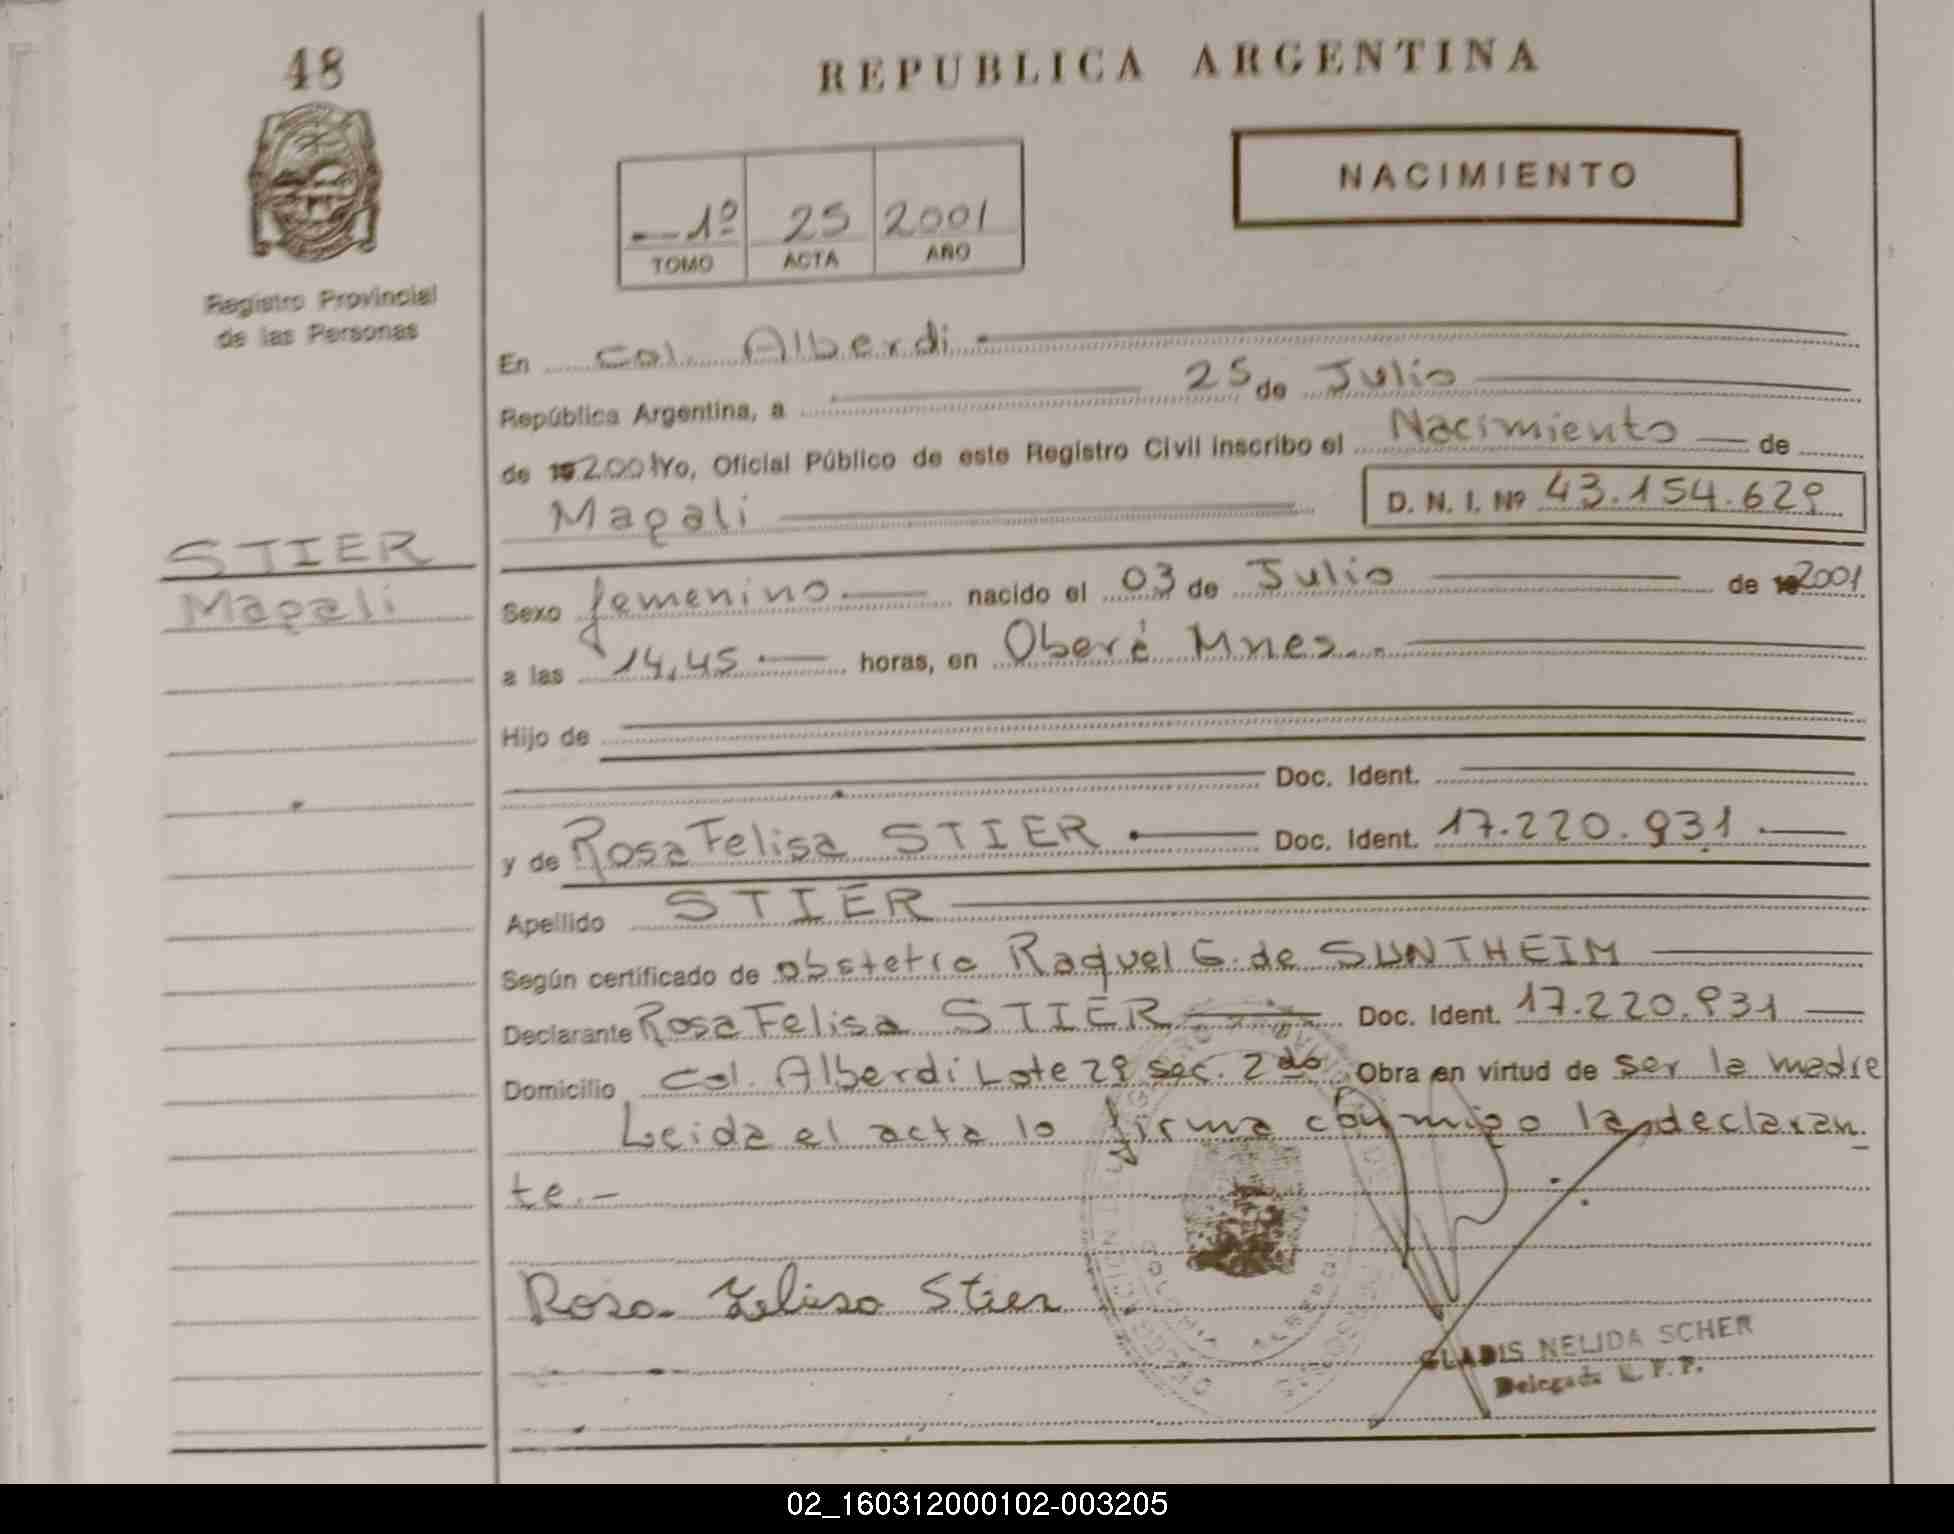 48
REPUBLICA ARGENTINA
NACIMIENTO
1º 25 2001
TOMO ACTA AÑO
Registro Provincial
de las Personas
En Col. Alberdi
República Argentina, a 25 de Julio
de 192001 Yo, Oficial Público de este Registro Civil inscribo el Nacimiento de
Magali D. N. I. Nº 43.154.629
STIER
Magali
Sexo femenino nacido el 03 de Julio de 192001
a las 14,45 horas, en Oberá Mnes.
Hijo de
Doc. Ident.
y de Rosa Felisa STIER Doc. Ident. 17.220.931
Apellido STIER
Según certificado de obstetra Raquel G. de SUNTHEIM
Declarante Rosa Felisa STIER Doc. Ident. 17.220.931
Domicilio Col. Alberdi Lote 29 sec. 2do Obra en virtud de ser la madre
Leida el acta lo firma conmigo la declaran
te.-
Rosa Felisa Stier
COLONIA ALBERDI
GLADIS NELIDA SCHER
Delegada R. P. P.
02_160312000102-003205